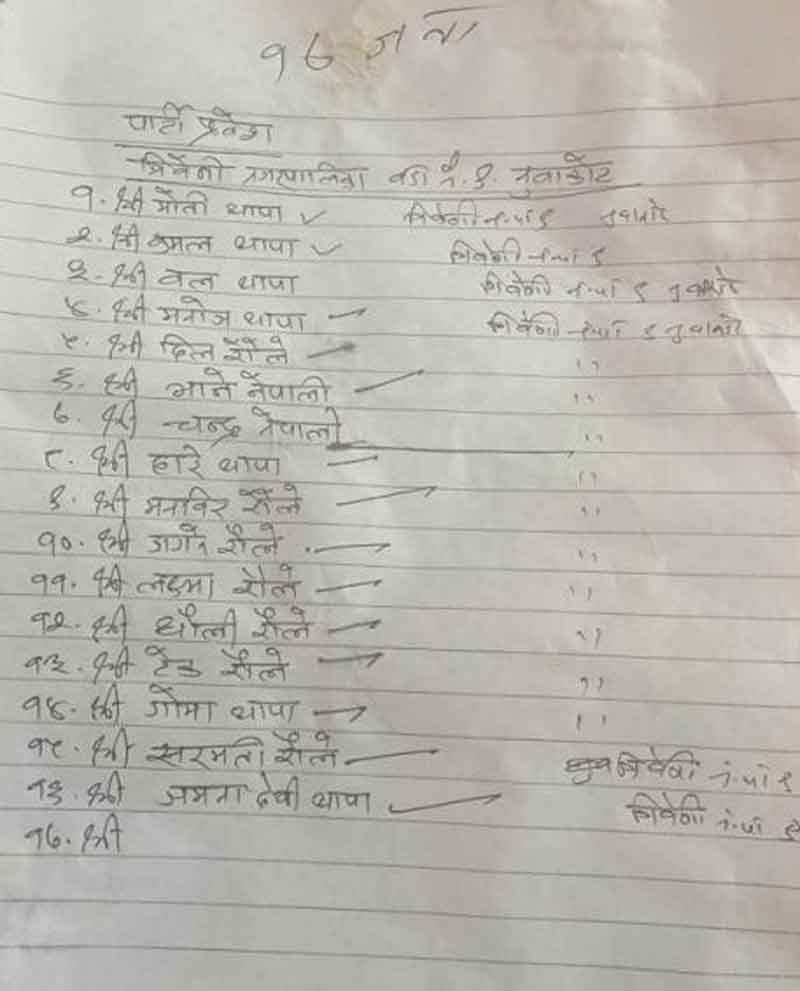 १७ जना
पार्टी प्रवेश
त्रिवेणी नगरपालिका वडा नं. ९. नुवाकोट
१. श्री मोती थापा ✓ त्रिवेणी न.पा ९
२. श्री कमल थापा ✓ त्रिवेणी न.पा ९
३. श्री वल थापा त्रिवेणी न.पा ९
४. श्री मनोज थापा त्रिवेणी न.पा ९
५. श्री दिल रौले "
६. श्री माने नेपाली "
७. श्री चन्द्र नेपाली "
८. श्री हरि थापा "
९. श्री मनविर रौले "
१०. श्री रौले "
११. श्री रौले "
१२. श्री थौली रौले "
१३. श्री टेक रौले "
१४. श्री गोमा थापा "
१५. श्री सरमती रौले त्रिवेणी न.पा ९
१६. श्री जमना देवी थापा त्रिवेणी न.पा ९
१७. श्री